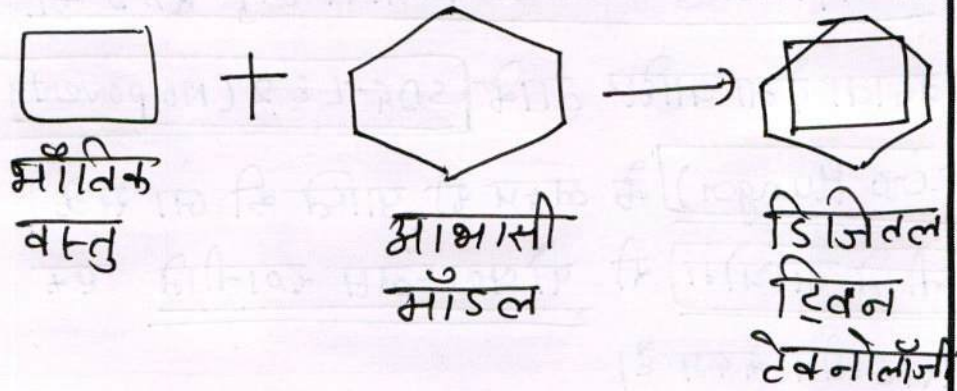 + →
भौतिक
वस्तु
आभासी
मॉडल
डिजितल
ट्विन
टेक्नोलॉजी